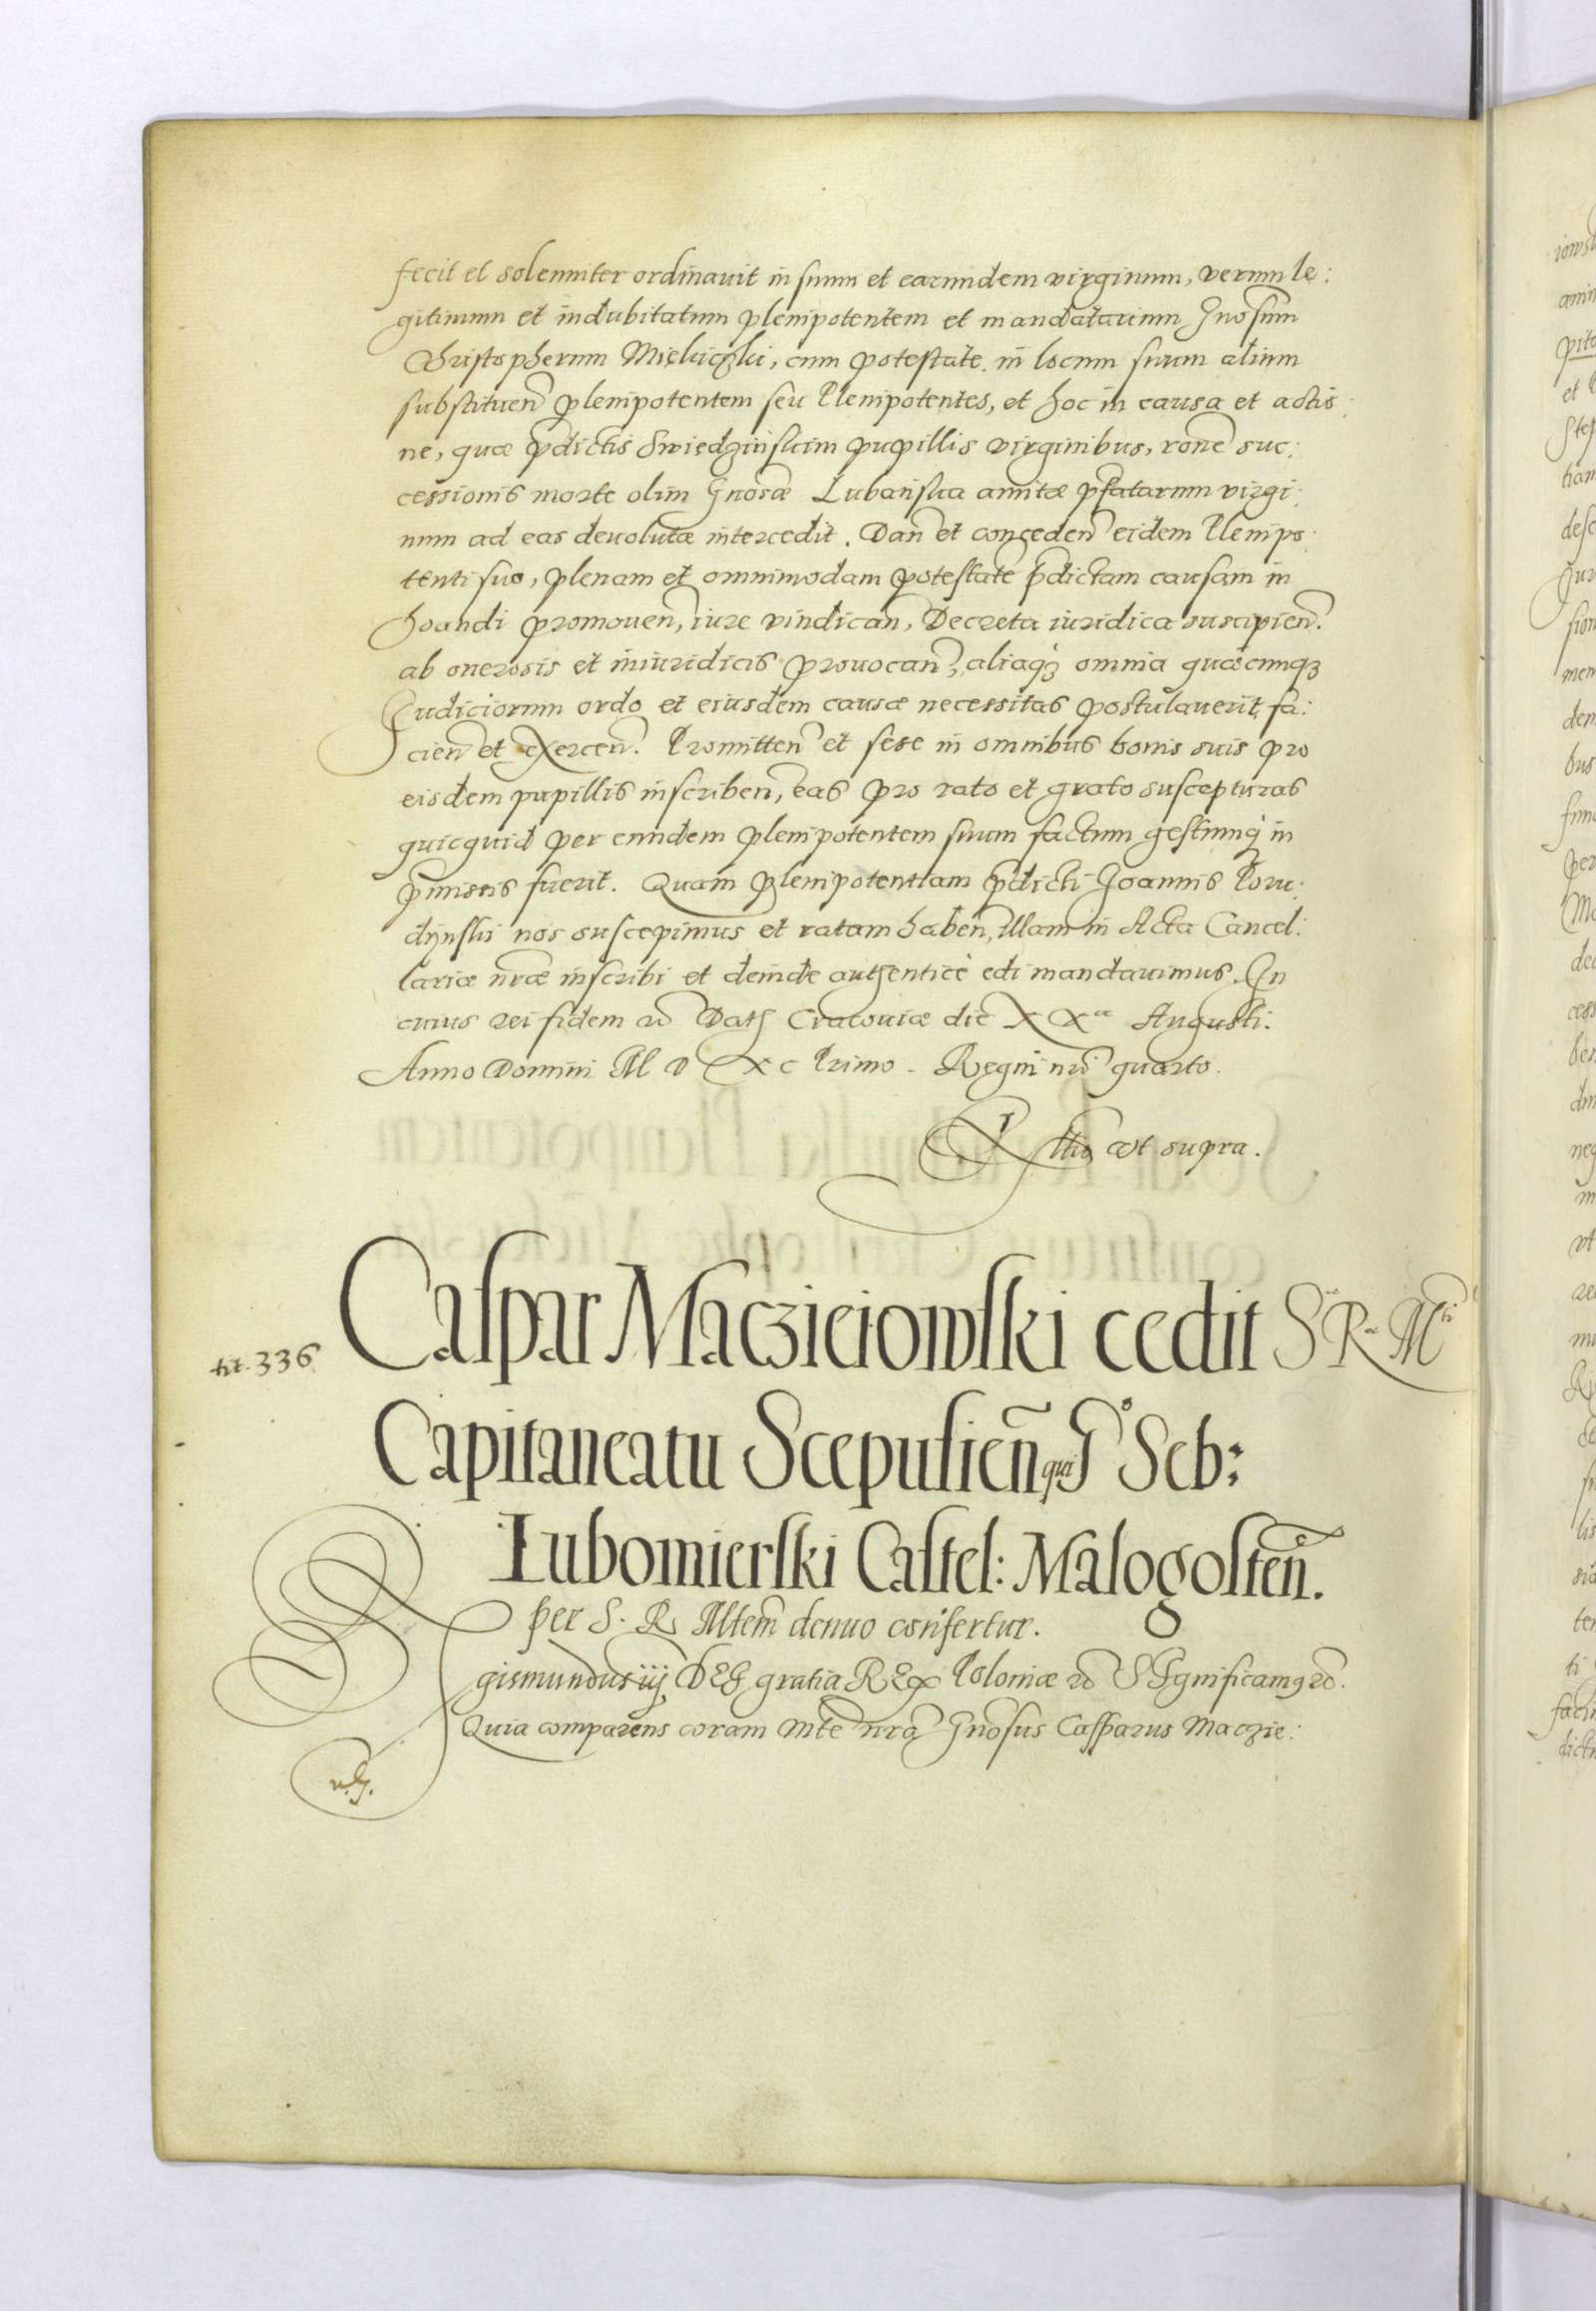 fecit et solenniter ordinavit in suum et earundem virginum, verum le:
gitimum et indubitatum plenipotentem et mandatarium Gnosum
Christopherum Mielviczki, cum potestate in locum suum alium
substituen̄ plenipotentem seu Plenipotentes, et hoc in causa et actio
ne, quæ p̄dictis Swiedzinskim pupillis virginibus, rōne suc:
cessionis morte olim Gnosæ Lubańska amitæ p̄fatarum virgi:
num ad eas devolutæ intercedit. Dan̄ et conceden̄ eidem Plenipo:
tenti suo, plenam et omnimodam potestatē p̄dictam causam in
hoandi promoven̄, iure vindican̄, Decreta iuridica suscipien̄.
ab onerosis et iniuridicis provocan̄, aliaq₃ omnia quæcunq₃
Iudiciorum ordo et eiusdem causæ necessitas postulaverit, fa:
cien̄ et exercen̄. Promitten̄ et sese in omnibus bonis suis pro
eisdem pupillis inscriben̄, eas pro rato et grato suscepturas
quicquid per eundem plenipotentem suum factum gestumq₃ in
p̄missis fuerit. Quam plenipotentiam p̄dicti Joannis Poru:
dijnski nos suscepimus et ratam haben̄, illam in Acta Cancel:
lariæ nr̄æ inscribi et deinde authenticè edi mandavimus. In
cuius rei fidem Dat Cracoviæ die XXa Augusti.
Anno Domini M D XC Primo. Regni nr̄i quarto.
ut supra.
tit. 336
Caspar Macziciowski cedit S R M
Capitaneatu Scepusien̄ qui G° Seb:
Lubomierski Castel: Malogosten̄.
per S. R. Mtem denuo confertur.
gismundus iij DEI gratia REX Poloniæ Significamus
Quia comparens coram Mte nr̄a Gnōsus Casparus Maczie: